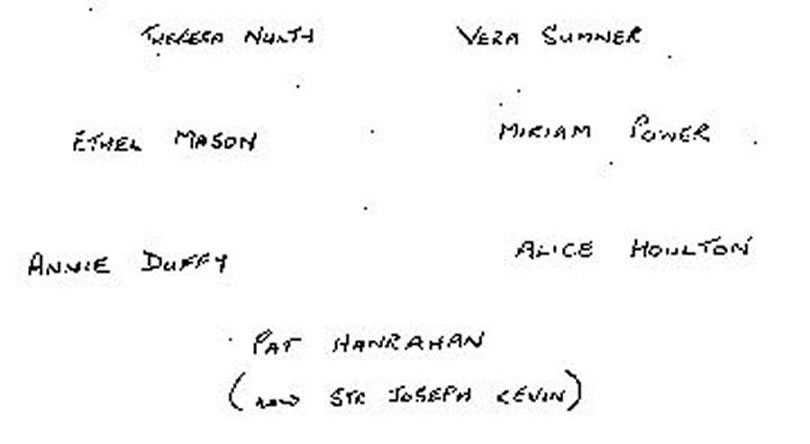 THERESA NULTY VERA SUMNER
ETHEL MASON MIRIAM POWER
ANNIE DUFFY ALICE HOULTON
PAT HANRAHAN
(now STR JOSEPH KEVIN)